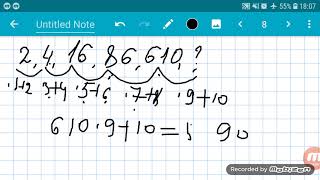 18:07
55%
Untitled Note
8
2, 4, 16, 86, 610, ?
·1+2 ·3+4 ·5+6 ·7+8 ·9+10
610·9+10= 5 90
Recorded by
Mobizen